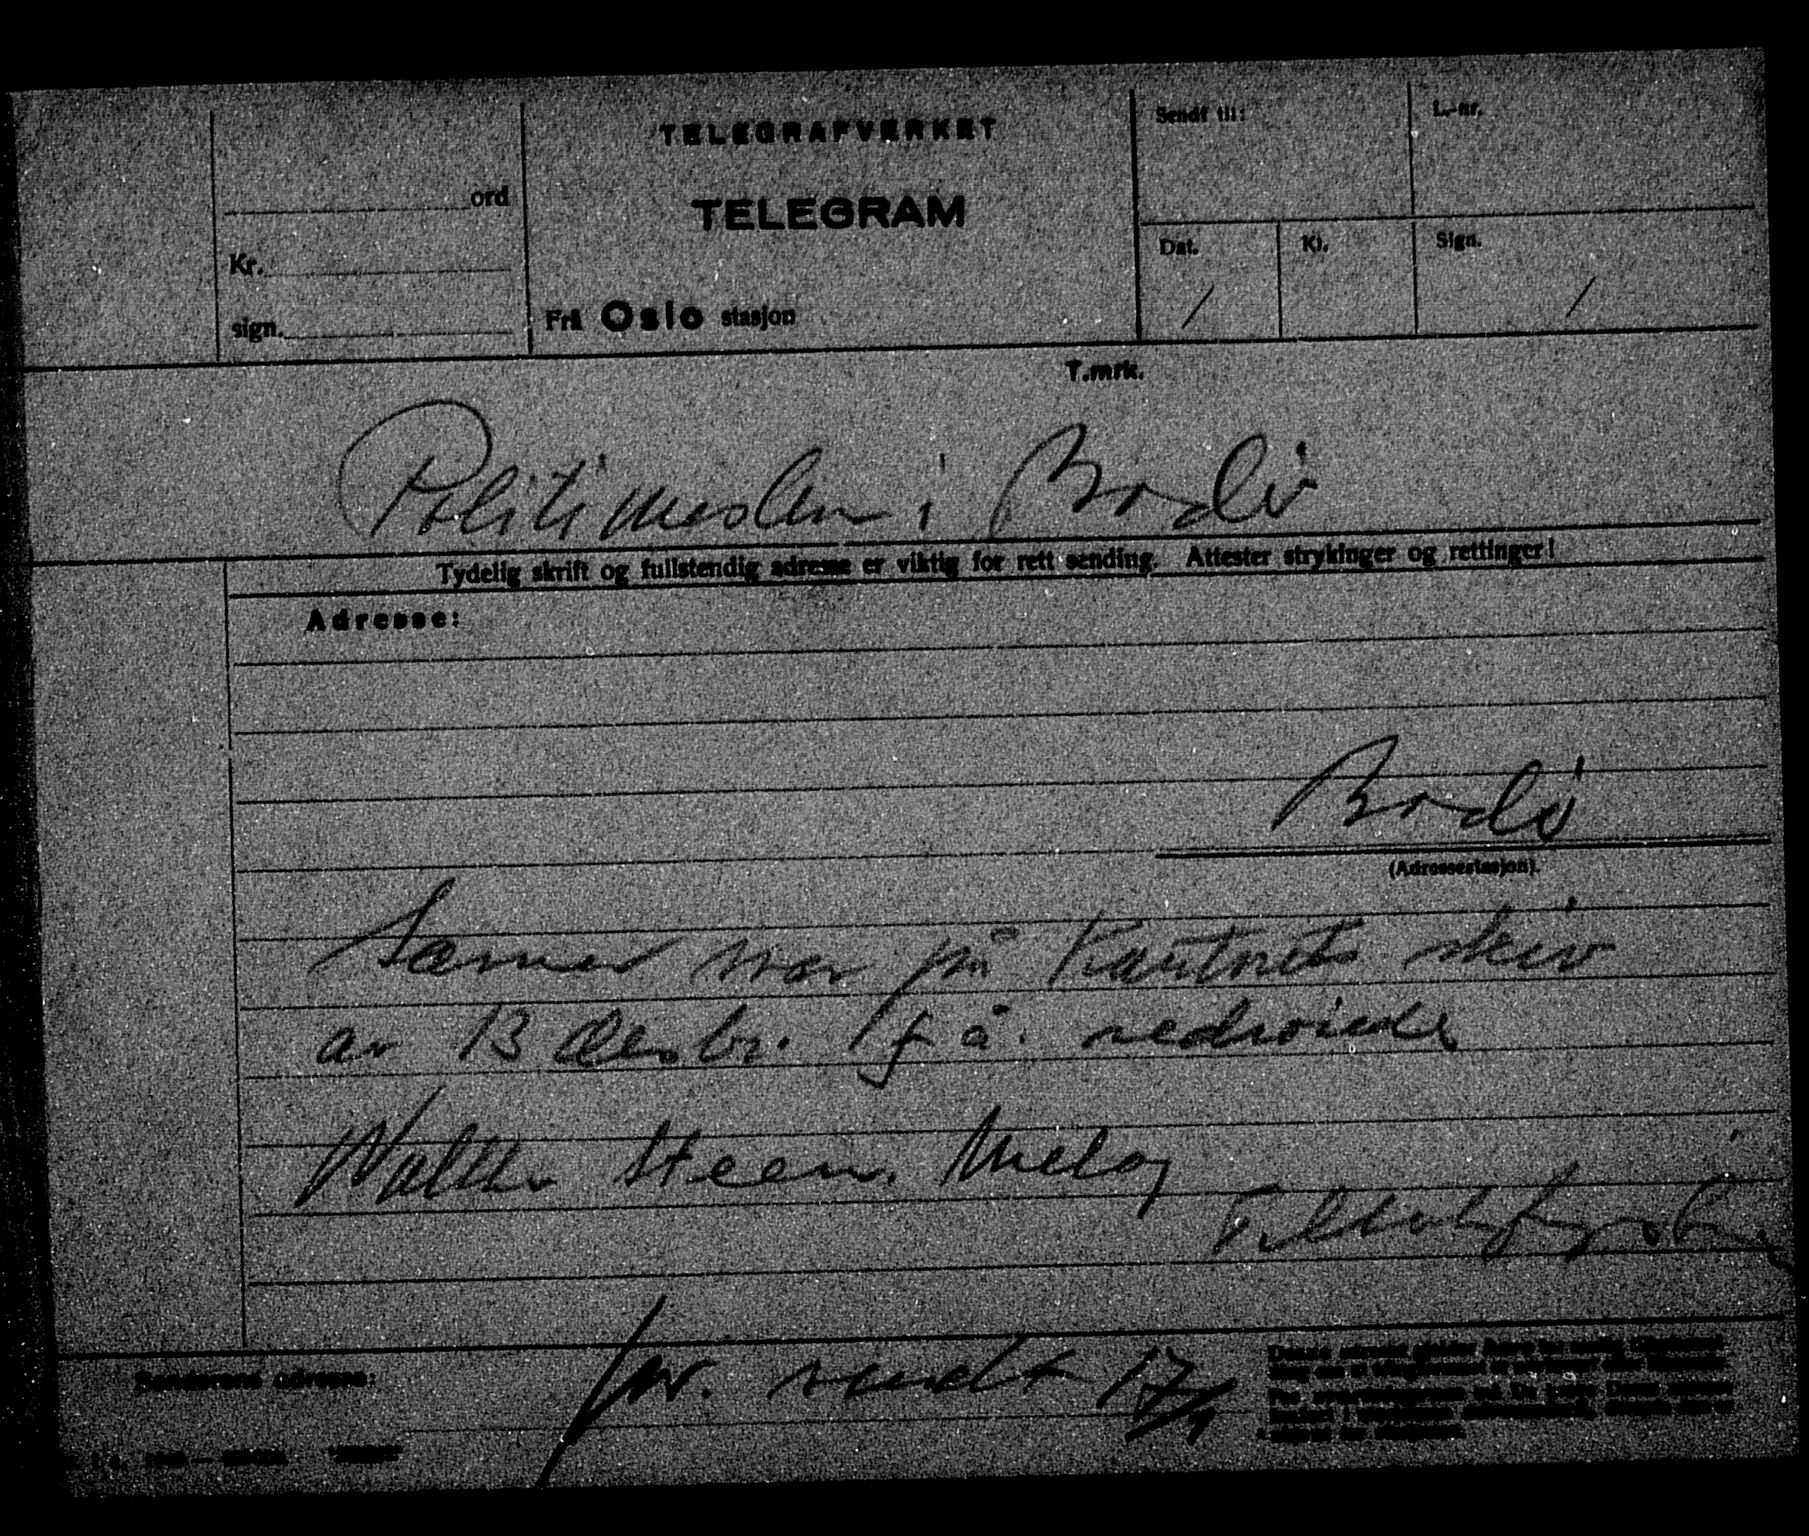 TELEGRAFVERKET
TELEGRAM
Frå Oslo stasjon
ord
Kr.
sign.
Sendt til:
L.-nr.
Dat.
Kl.
Sign.
/
/
T.mrk.
Politimesteren i Bodø
Tydelig skrift og fullstendig adresse er viktig for rett sending. Attester strykinger og rettinger!
Adresse:
Bodø
(Adressestasjon).
Savner svar på Kontorets skriv
av 13 desbr. f å. vedrørende
Walther Steen, Meløy
sendt 17/1
Senderens adresse: